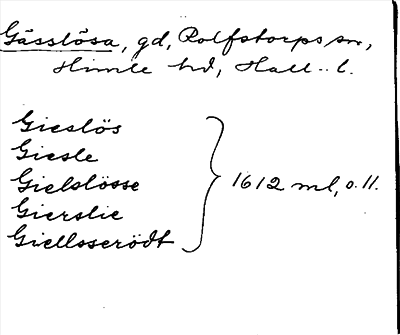 Gässlösa, gd, Rolfstorps sn,
Himle hd, Hall. l.
Gieslös
Giesle
Gielslösse
Gierslie
Giellsserödt
1612 ml, o. 11.